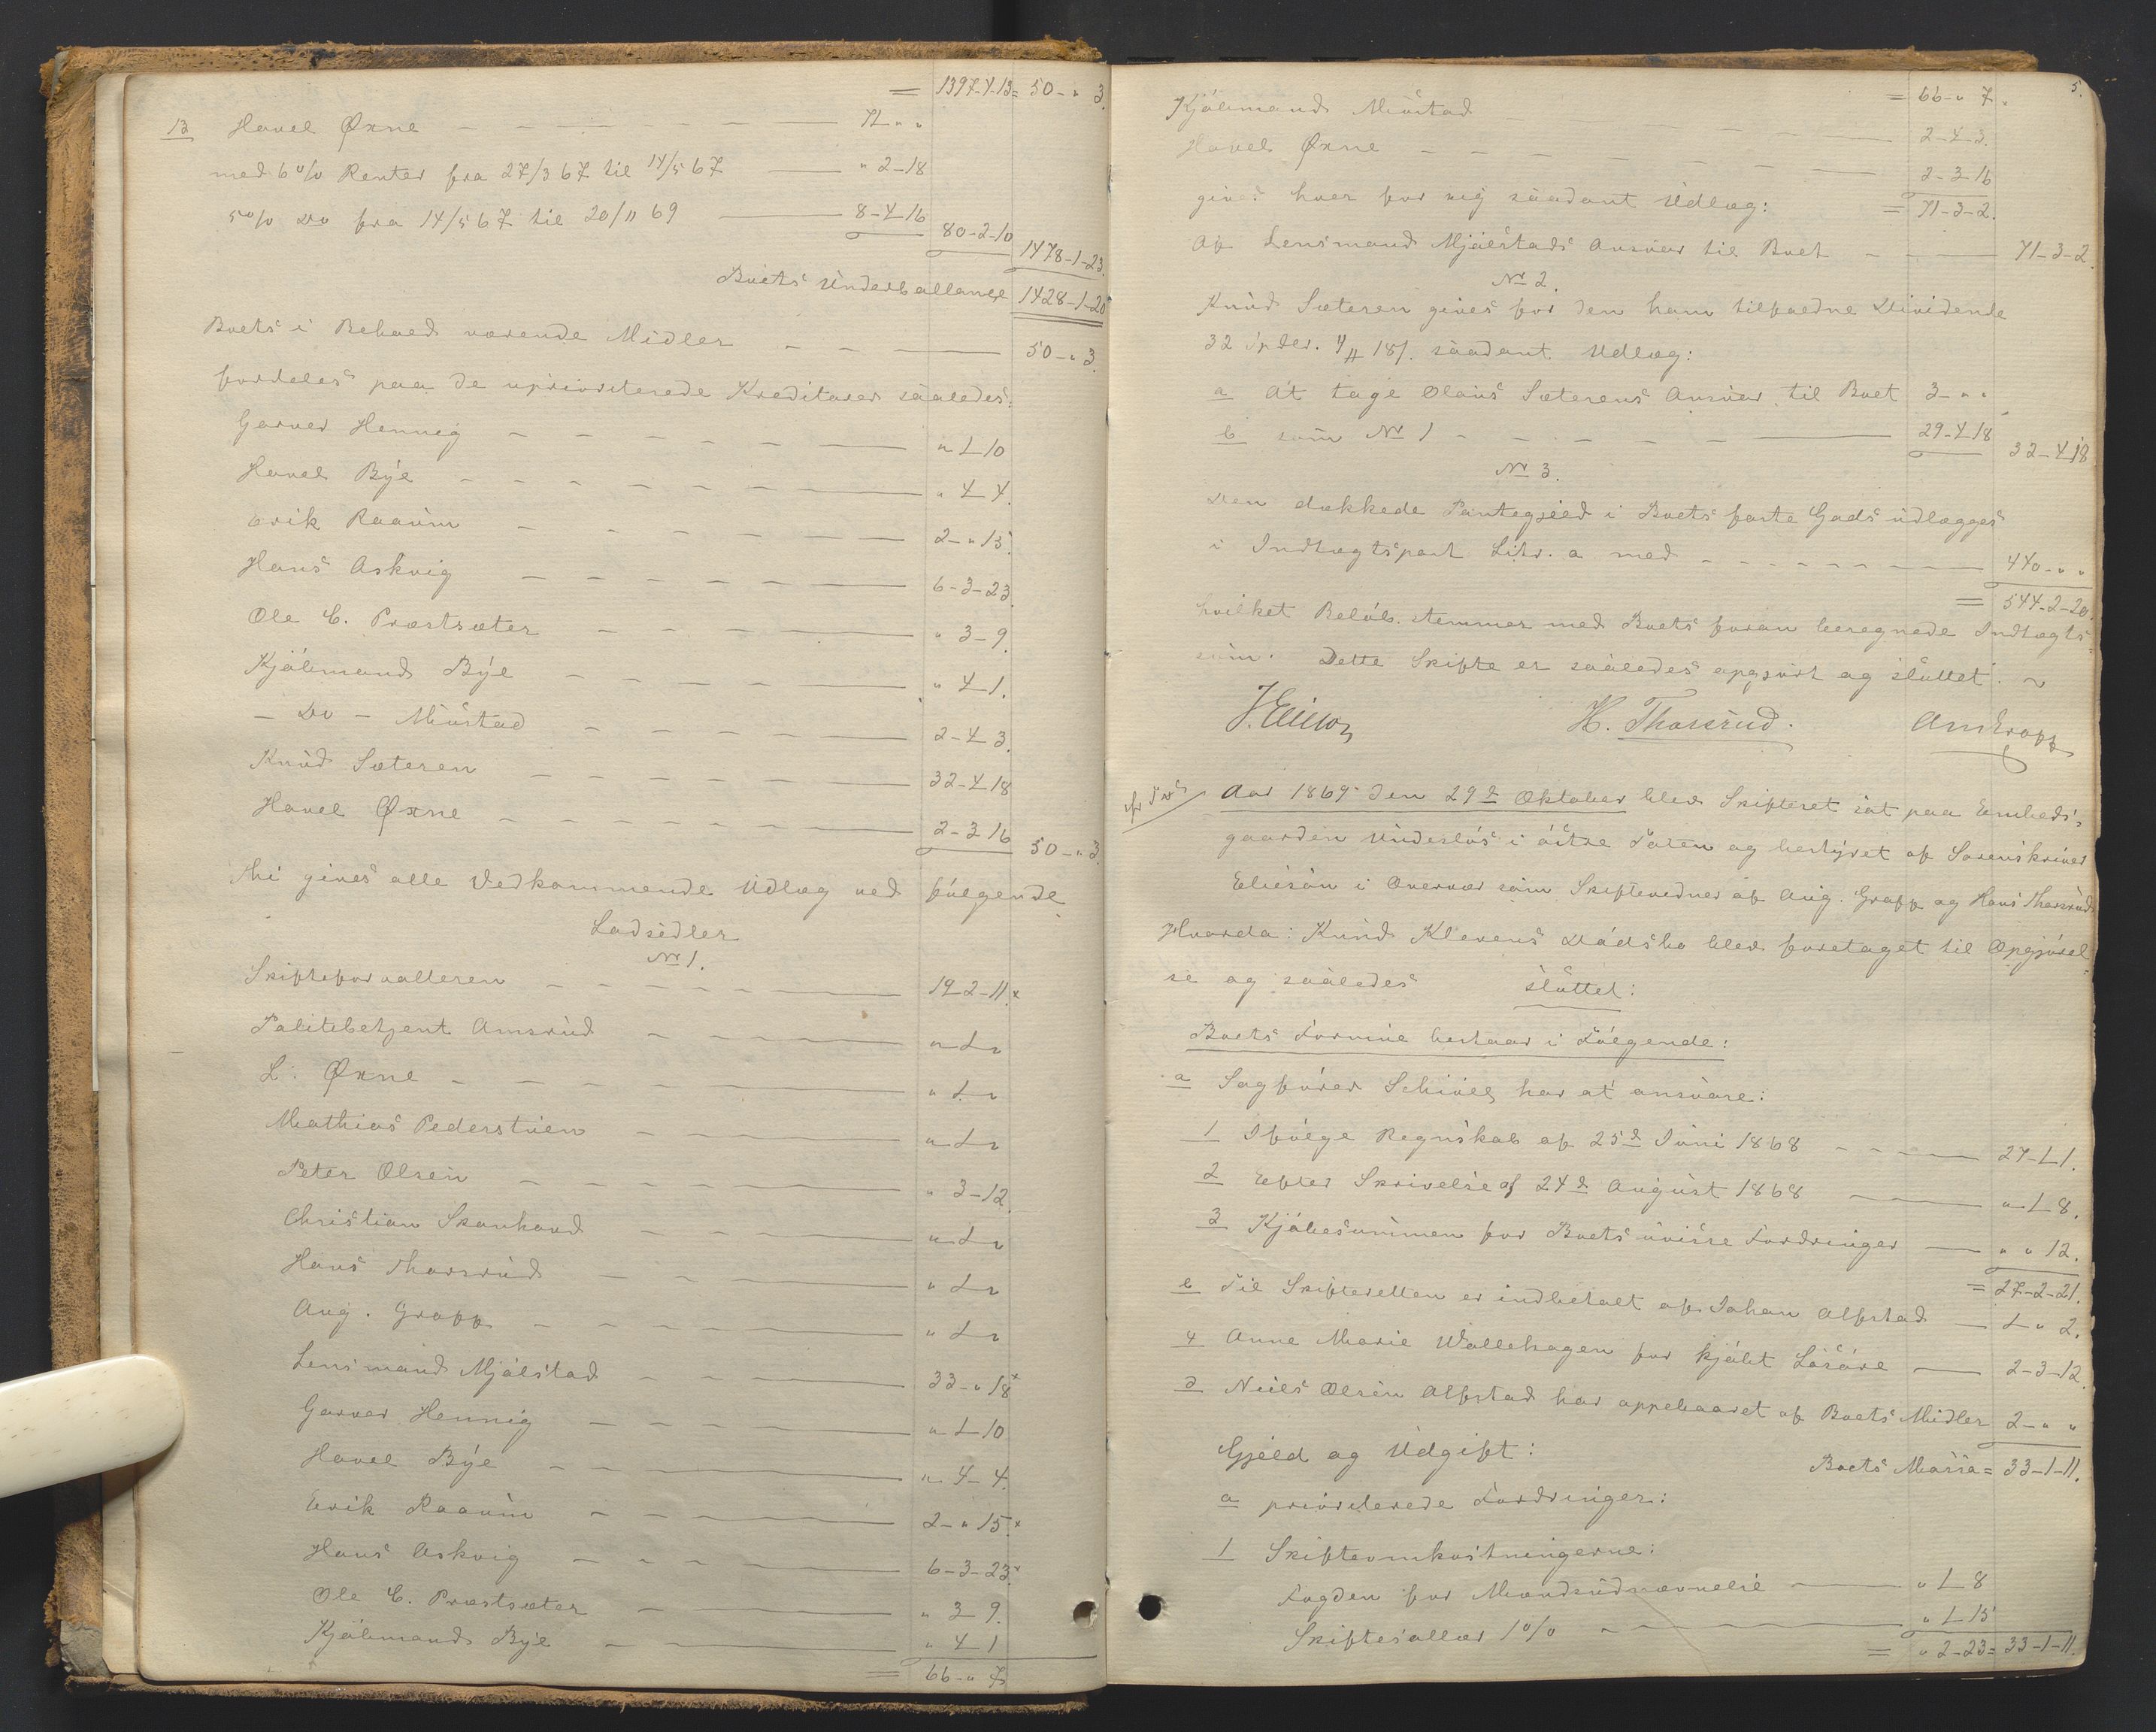 = 1397-4-13 = 50-"3.
13 Havel Øxne — 71 " "
med 6 % Renter fra 27/3 67 til 14/5 67 — " 2-18
5 % Do fra 14/5 67 til 20/11 69 — 8-4-16 80-2-10 1478-1-23.
Boets Underballance 1428-1-20
Boets i Behold værende Midler — 50-"3.
fordeles paa de uprioriterede Kreditorer saaledes:
Garver Hennig — " 1-10
Havel Bye — " 4-4.
Erik Raaum — 2-"15.
Hans Askvig — 6-3-23.
Ole C. Præstsæter — " 3-9.
Kjøbmand Bye — " 4-1.
— Do — Mustad — 2-4-3.
Knud Sæteren — 32-4-18
Havel Øxne — 2-3-16 50-"3.
Thi gives alle Vedkommende Udlæg ved følgende
Lodsedler
No 1.
Skifteforvalteren — 19-2-11 x
Politibetjent Amsrud — " 1 "
L. Øxne — " 1 "
Mathias Pederstuen — " 1 "
Peter Olsen — " 3-12.
Christian Skanhaud — " 1 "
Hans Thorsrud — " 1 "
Aug. Gropp — " 1 "
Lensmand Mjølstad — 33-"18 x
Garver Hennig — " 1-10
Havel Bye — " 4-4.
Erik Raaum — 2-"15 x
Hans Askvig — 6-3-23 x
Ole C. Præstsæter — " 3 9.
Kjøbmand Bye — " 4 1
= 66-"7
5.
= 66-"7.
Kjøbmand Mustad — 2-4-3.
Havel Øxne — 2-3-16
gives hver for sig saadant Udlæg: = 71-3-2.
Af Lensmand Mjølstads Ansvar til Boet — 71-3-2.
No 2.
Knud Sæteren gives for den ham tilfaldne Dividende
32 Spdlr. 4 # 18 /. saadant Udlæg:
a At tage Olaus Sæterens Ansvar til Boet 3-" "
b som No 1 — 29-4-18 32-4-18
No 3.
Den dækkede Pantegjæld i Boets faste Gods udlægges
i Indtægtspost Litr. a med — 440-" "
= 544-2-20.
hvilket Beløb stemmer med Boets foran beregnede Indtægts-
sum. Dette Skifte er saaledes opgjort og sluttet.
J. Elieson H. Thorsrud. Aug Gropp
Aar 1869 den 29de Oktober blev Skifteret sat paa Embeds-
gaarden Underlös i östre Toten og bestyret af Sorenskriver
Elieson i Overvær som Skiftevidner af Aug. Gropp og Hans Thorsrud
Hvorda: Knud Klevens Dödsbo blev foretaget til Opgjörel-
se og saaledes sluttet:
Boets Formue bestaar i Fölgende:
a Sagförer Schiöll har at ansvare:
1 Ifölge Regnskab af 25de Juni 1868 — 27-1-1.
2 Efter Skrivelse af 24de August 1868 — " 1-8.
3 Kjöbesummen for Boets uvisse Fordringer — " " 12.
= 27-2-21.
b Til Skifteretten er indbetalt af Johan Alfstad — 1 " 2.
4 Anne Marie Wollehagen for kjöbt Lösöre — 2-3-12.
d Niels Olsen Alfstad har oppebaaret af Boets Midler 2-" "
Boets Massa = 33-1-11.
Gjæld og Udgift:
a prioriterede Fordringer:
1 Skifteomkostningerne:
Fogden for Mandsudnævnelse — " 1 8
Skiftesallær 1 % — " 1 15
= " 2-23 = 33-1-11.